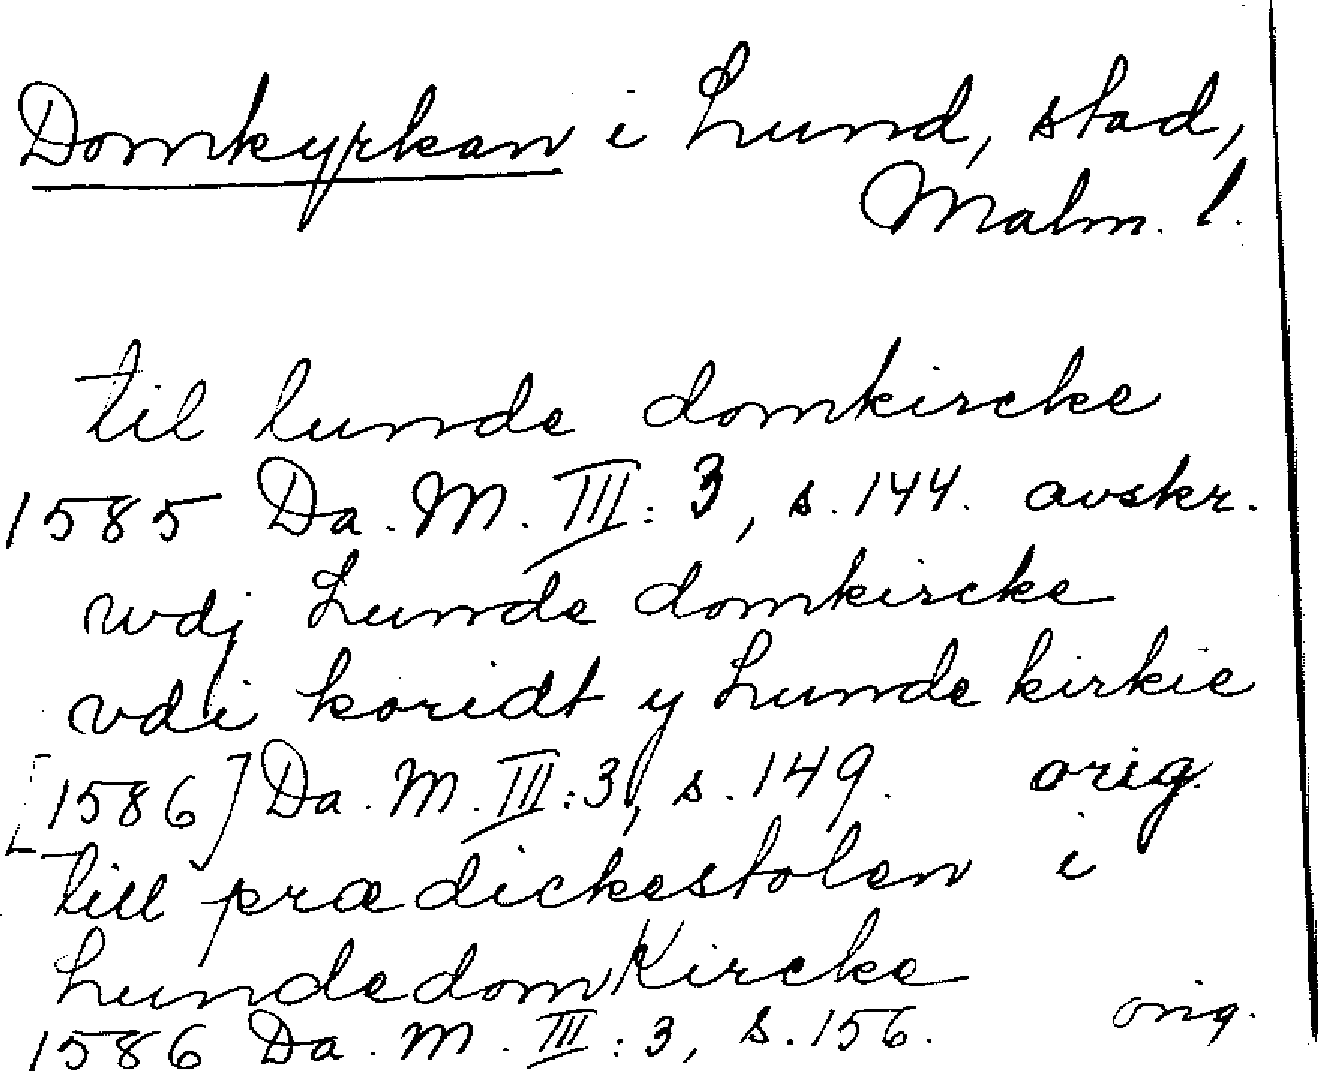 Domkyrkan i Lund, stad,
Malm. l.
til lunde domkircke
1585 Da. M. III: 3, s. 144. avskr.
wdj Lunde domkircke
vdi koridt y Lunde kirkie
[1586] Da. M. III: 3, s. 149. orig.
till prædickestolen i
Lundedomkircke
1586 Da. M. III: 3, s. 156. orig.